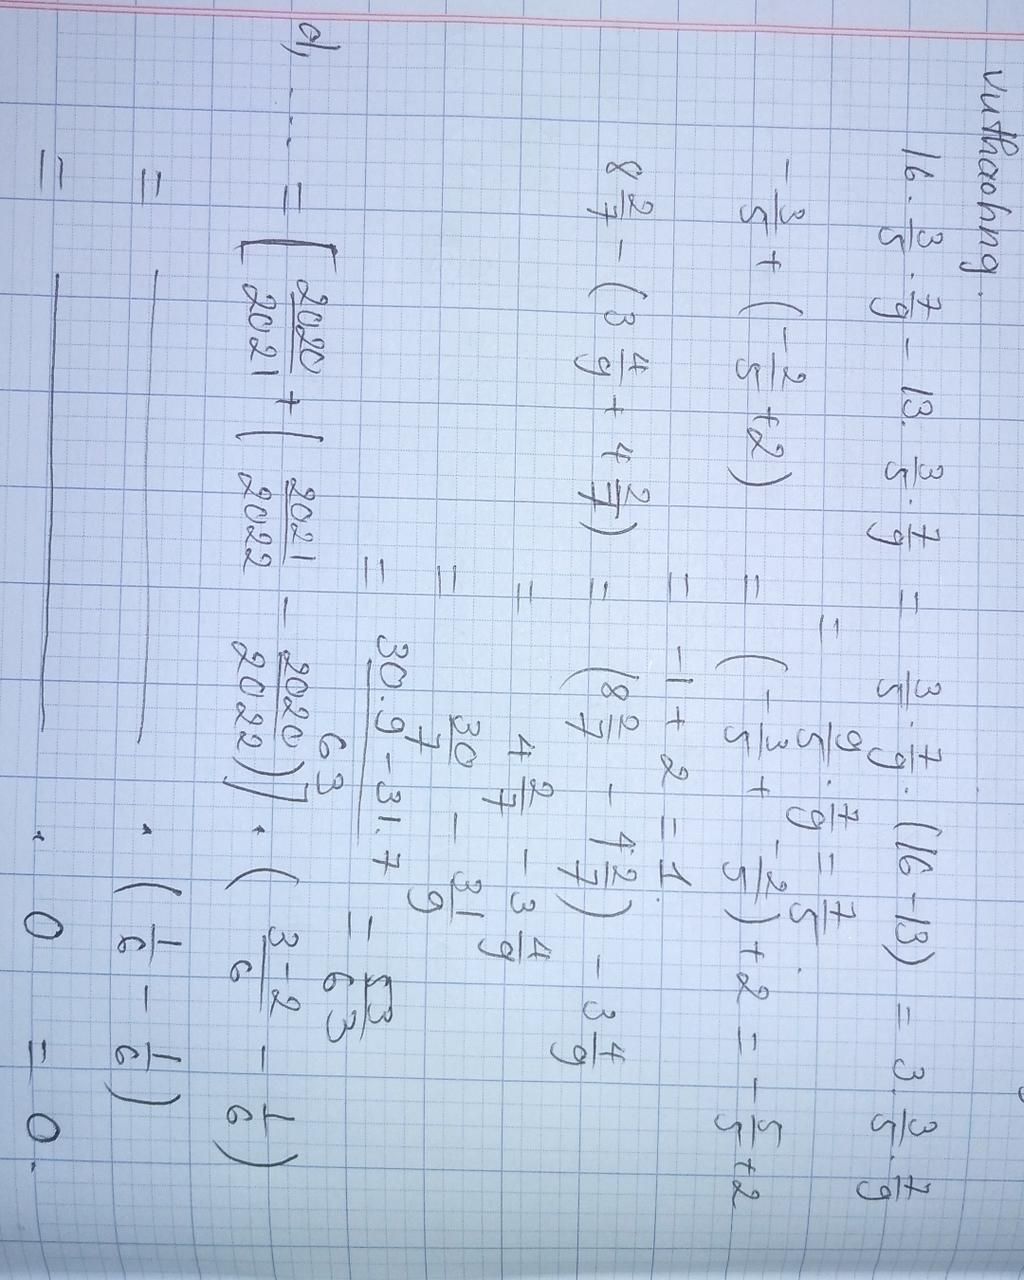 vuthaohng.
16 . 3/5 . 7/9 - 13 . 3/5 . 7/9 = 3/5 . 7/9 . (16 - 13) = 3 . 3/5 . 7/9
= 9/5 . 7/9 = 7/5 .
-3/5 + (-2/5 + 2) = (-3/5 + -2/5) + 2 = -5/5 + 2
= -1 + 2 = 1.
8 2/7 - (3 4/9 + 4 2/7) = (8 2/7 - 4 2/7) - 3 4/9
= 4 2/7 - 3 4/9
= 30/7 - 31/9
= 30.9 - 31.7 / 63 = 53/63
d, .... = [2020/2021 + (2021/2022 - 2020/2022)] . (3-2/6 - 1/6)
= . (1/6 - 1/6)
= . 0 = 0.